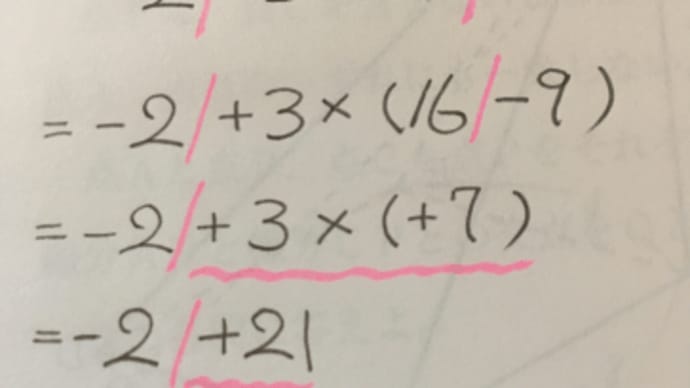 = -2 / +3 × (16 / -9)
= -2 / +3 × (+7)
= -2 / +21